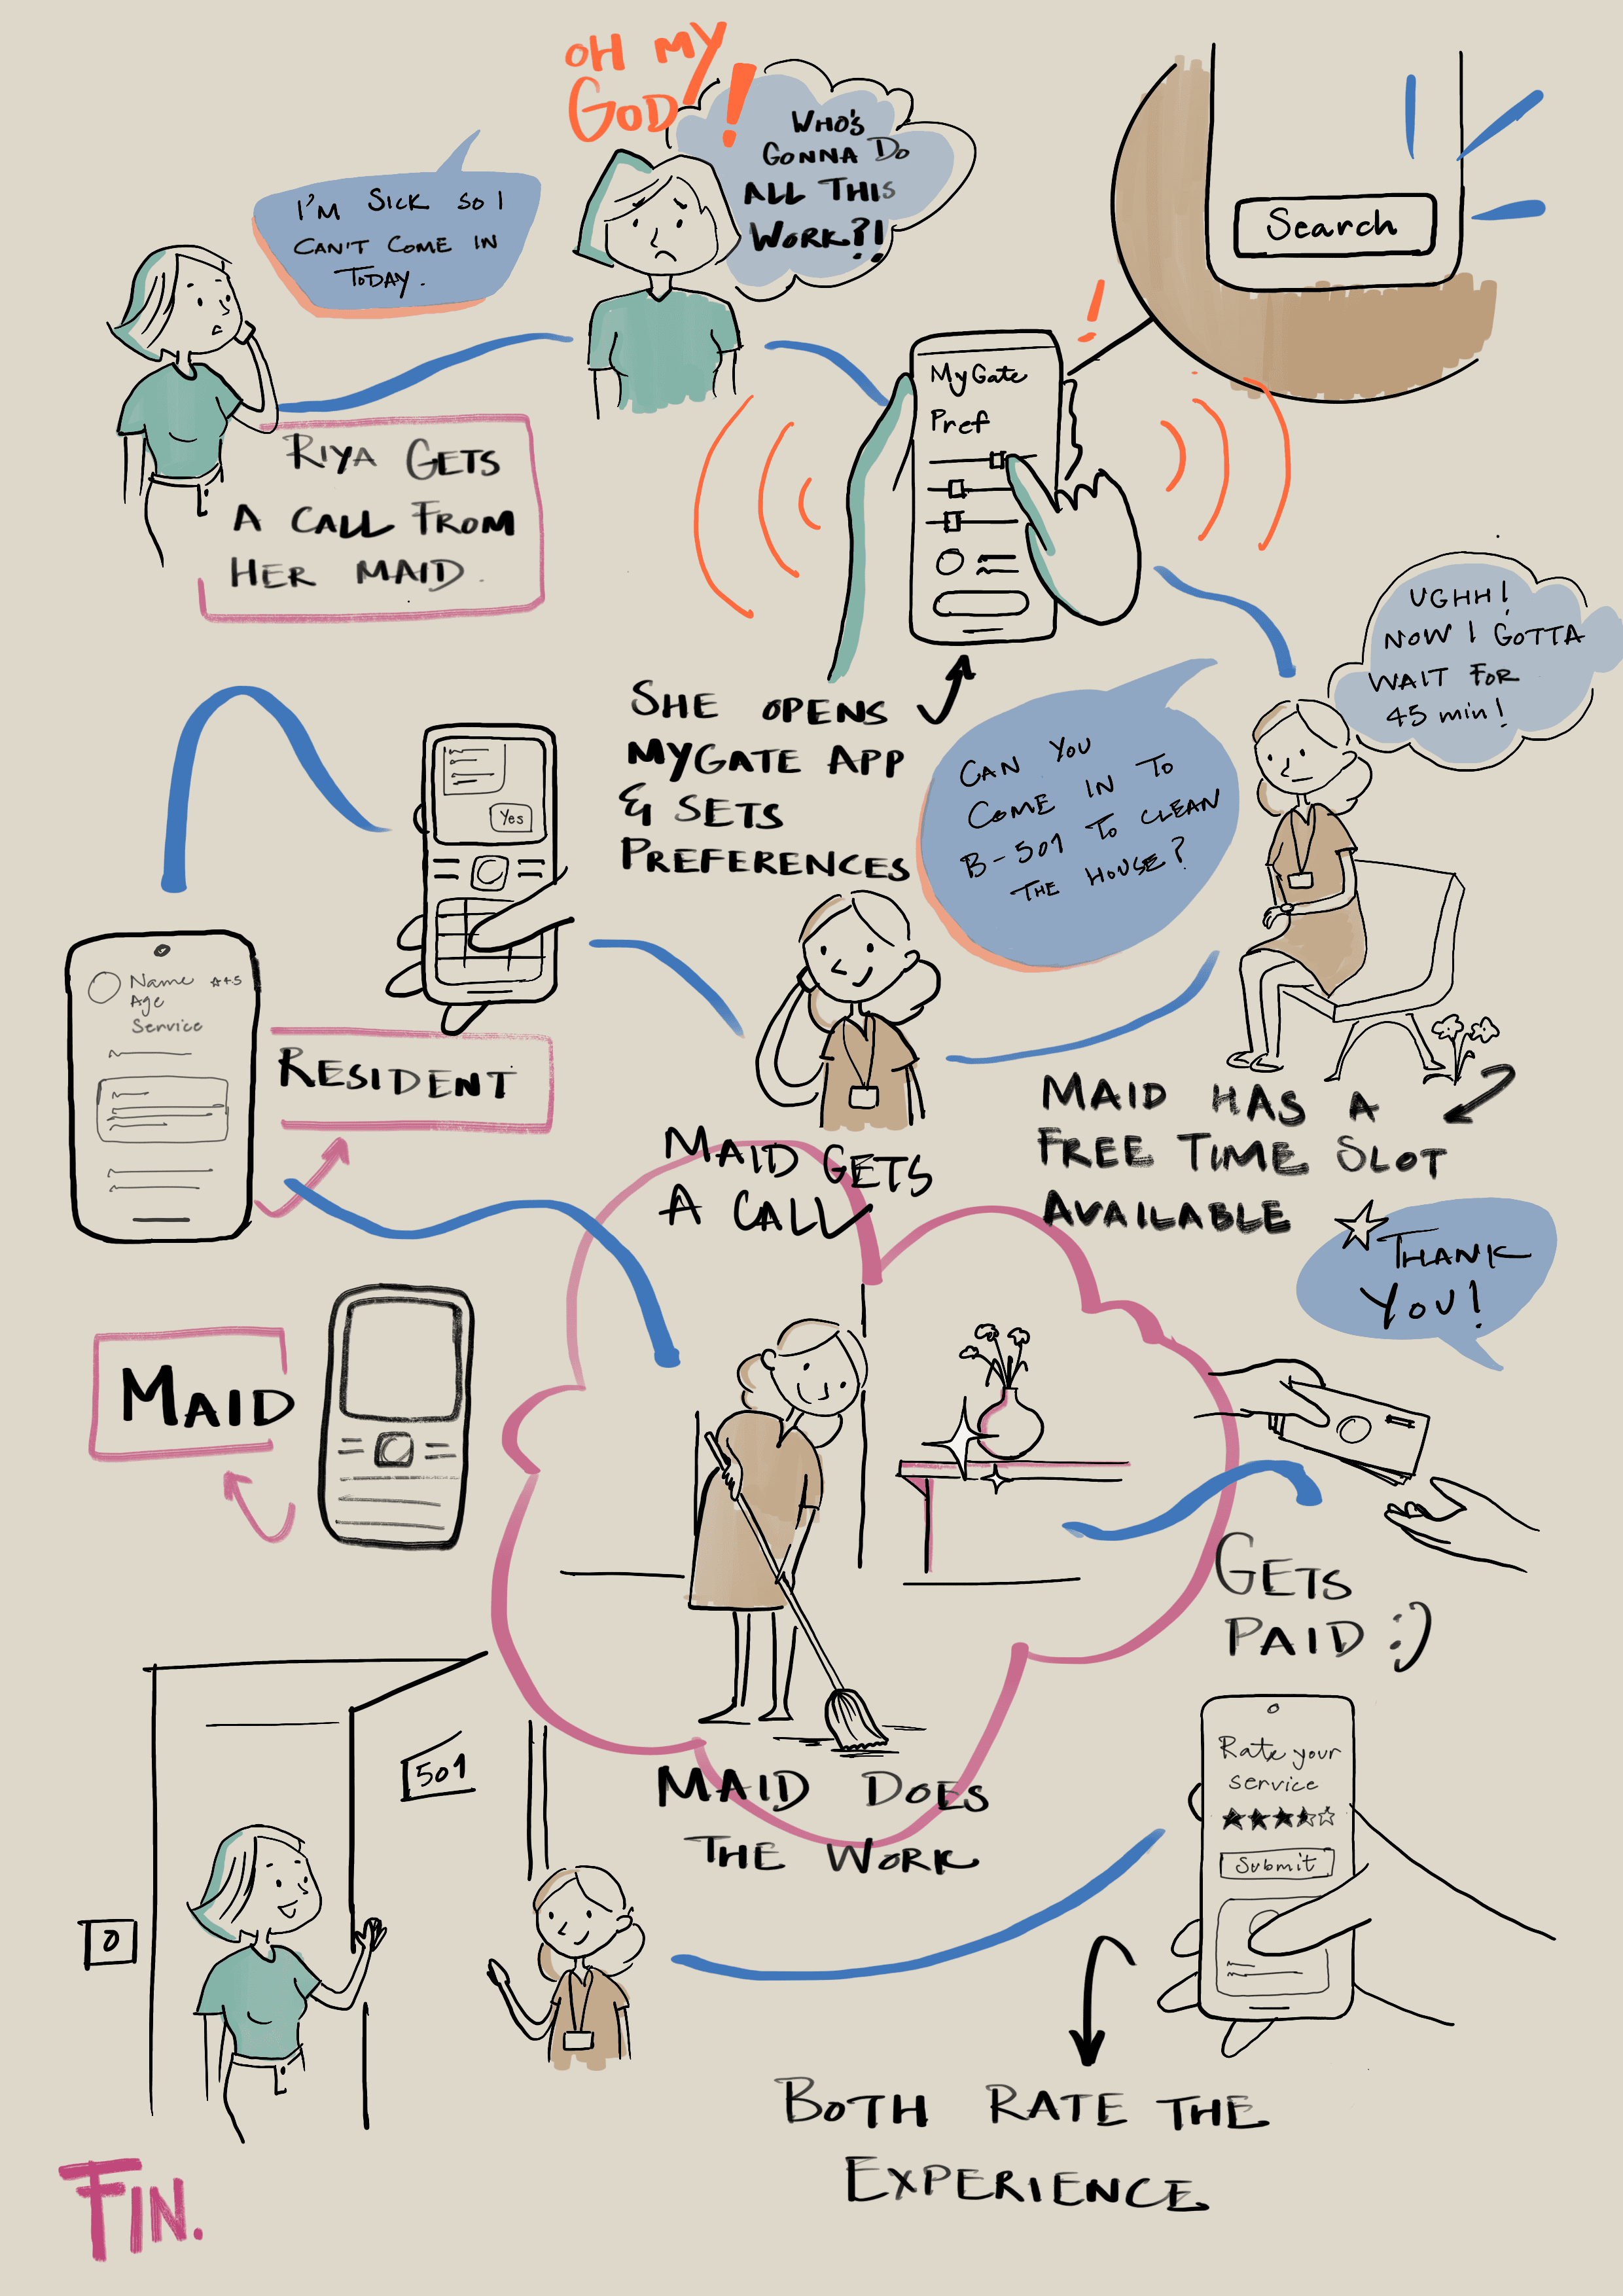 I'M SICK SO I
CAN'T COME IN
TODAY.
OH MY
GOD!
WHO'S
GONNA DO
ALL THIS
WORK?!
Search
RIYA GETS
A CALL FROM
HER MAID.
MyGate
Pref
!
SHE OPENS
MYGATE APP
& SETS
PREFERENCES
UGHH!
NOW I GOTTA
WAIT FOR
45 min!
CAN YOU
COME IN TO
B-501 TO CLEAN
THE HOUSE?
MAID HAS A
FREE TIME SLOT
AVAILABLE
MAID GETS
A CALL
Yes
Name
Age
Service
RESIDENT
MAID
MAID DOES
THE WORK
THANK
YOU!
GETS
PAID :)
Rate your
service
Submit
BOTH RATE THE
EXPERIENCE
501
0
FIN.